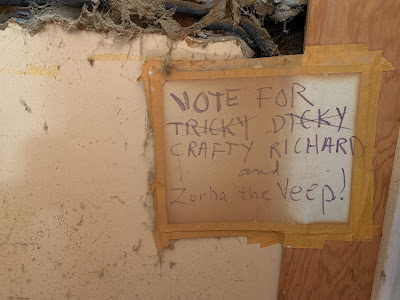 VOTE FOR
TRICKY DICKY
CRAFTY RICHARD
and
Zorba the Veep!